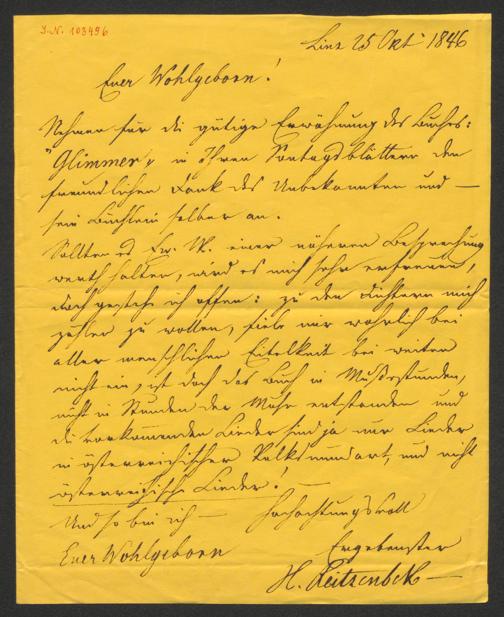 I. N. 103496
Linz 25 Okt 1846
Euer Wohlgeborn!
Nehmen für die gütige Erwähnung des Buches:
"Glimmer" in Ihren Sontagsblättern den
freundlichen Dank des Unbekannten und —
sein Büchlein selber an.
Sollten es Ew. W. einer näheren Besprechung
werth halten, wird es mich sehr erfreuen,
doch gestehe ich offen: zu den Dichtern mich
zählen zu wollen, fiele mir wahrlich bei
aller menschlichen Eitelkeit bei weiten
nicht ein, ist doch das Buch in Mußestunden,
nicht in Stunden der Muse entstanden und
die vorkommenden Lieder sind ja nur Lieder
in österreichischer Volksmundart, und nicht
österreichische Lieder! —
Und so bin ich — Hochachtungsvoll
Euer Wohlgeborn Ergebenster
H. Reitzenbeck